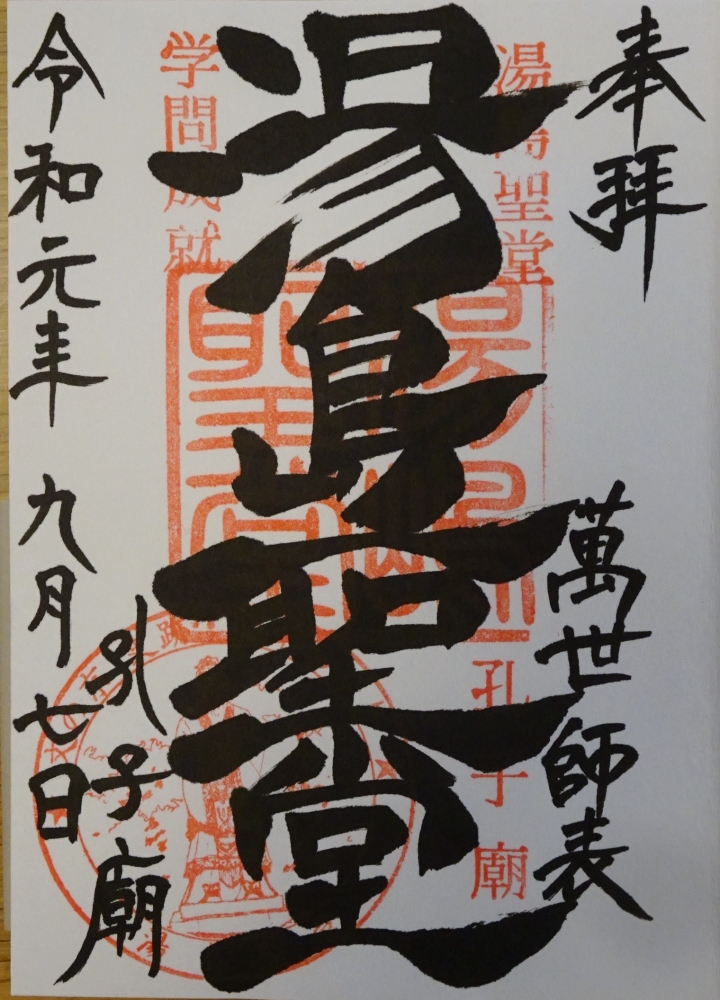 奉拝
萬世師表
湯島聖堂
孔子廟
令和元年 九月七日
湯島聖堂
孔子廟
学問成就